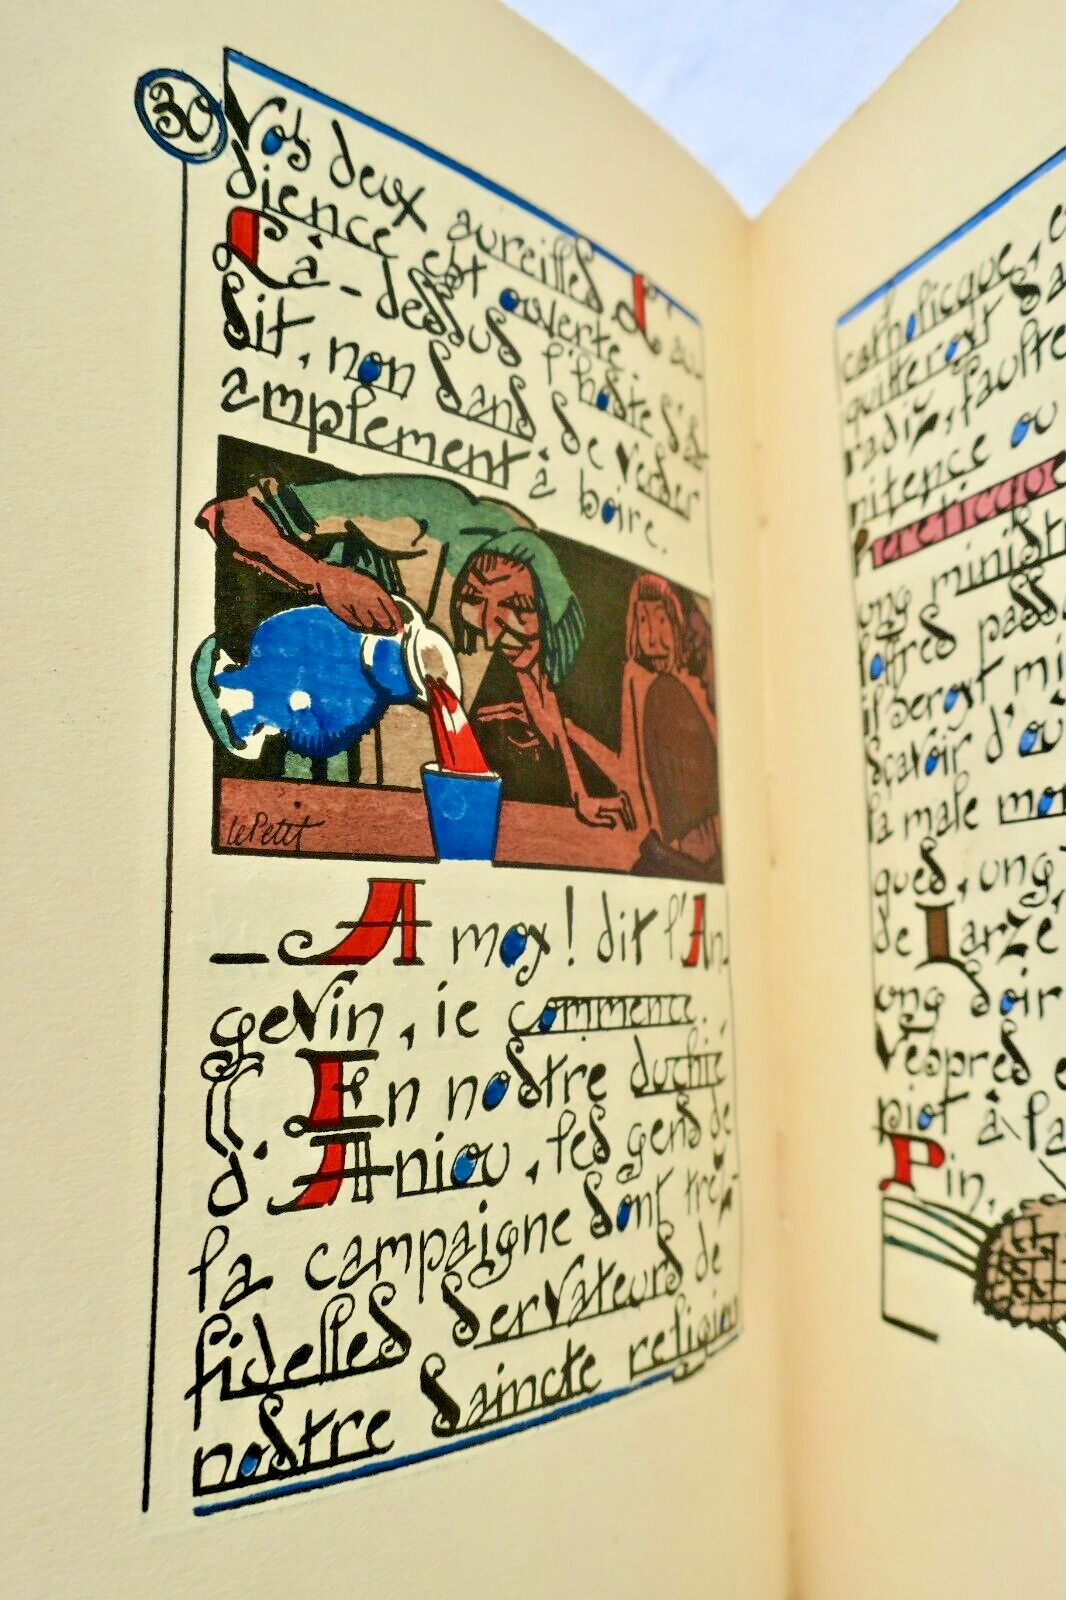 30
Vos deux aureilles. L'au
dience est ouverte.
Là-dessus l'hoste s'as
sit, non sans se verser
amplement à boire.
le Petit
— A moy! dit l'An-
gevin, ie commence.
En nostre duchié
d'Aniou, les gens de
la campaigne sont trez-
fidelles servateurs de
nostre saincte religion
catholicque, e
quitteroyt sa
radiz, faulte
nitence ou
hereticque
ung ministr
lottres pass
il seroyt mi
sçavoir d'où
la male mo
gues, ung
de Iarze,
ung soir
vespres e
piot à la
Pin.